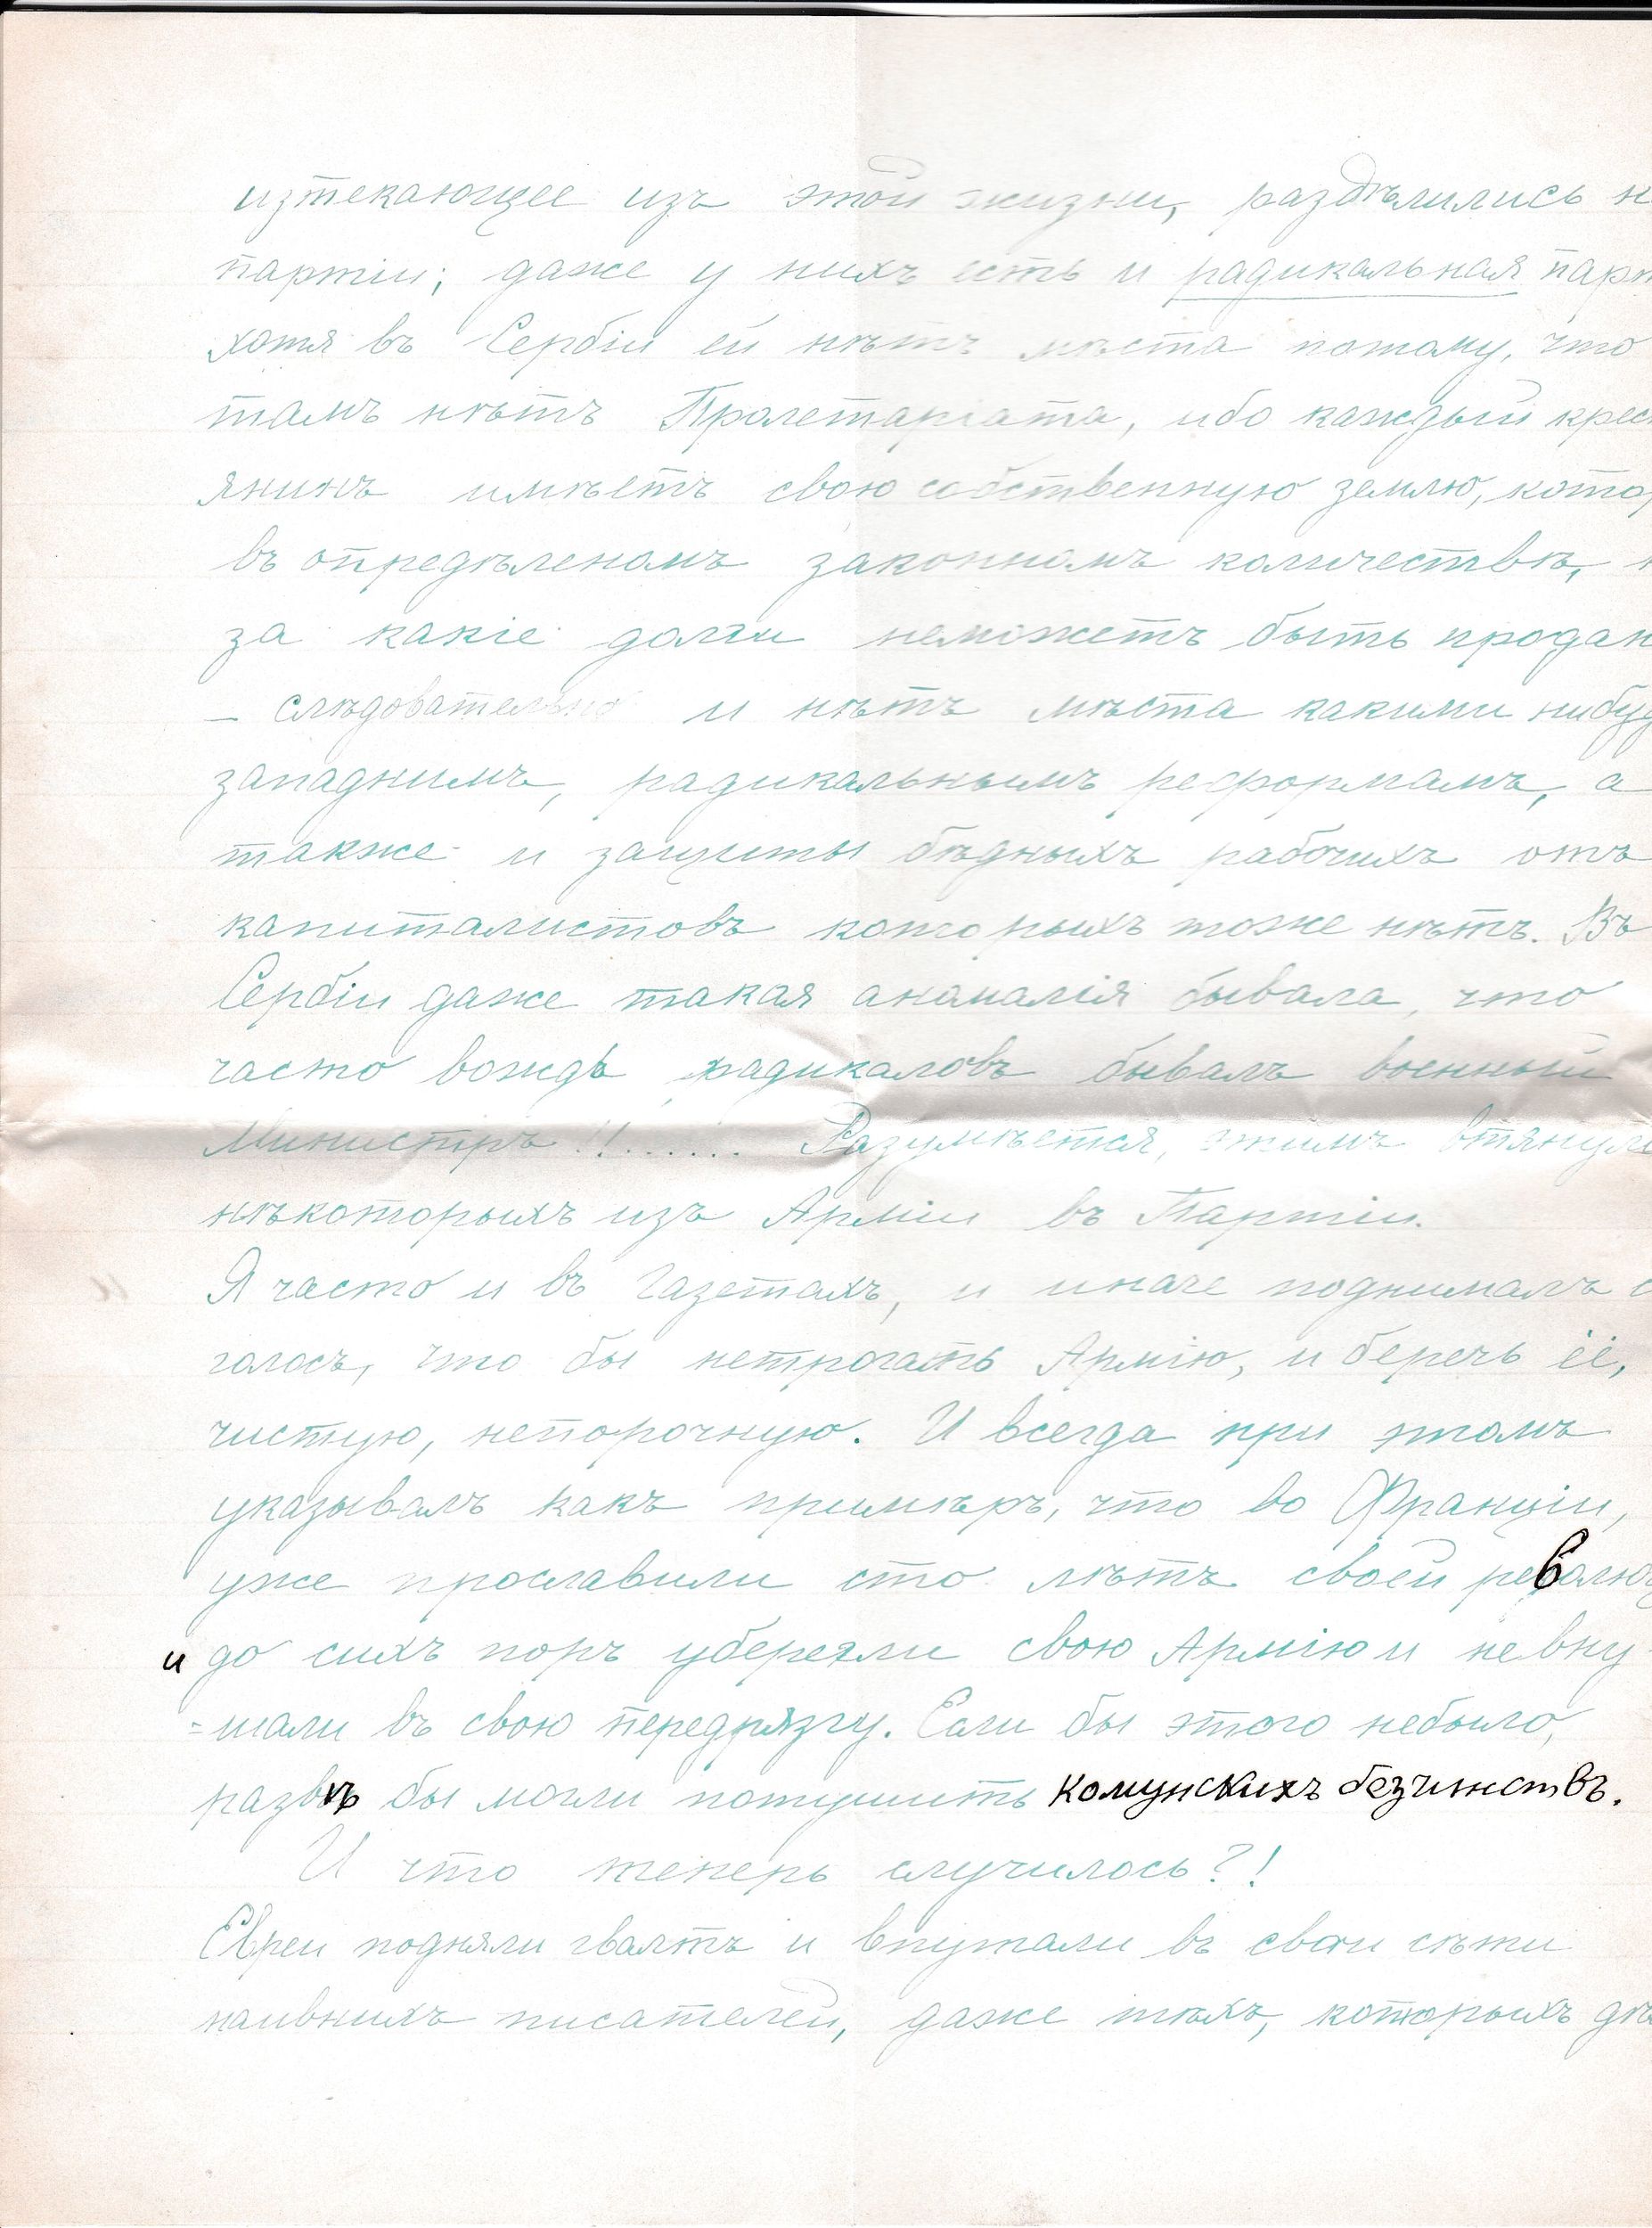 изтекающее изъ этой жизни, раздѣлились н
партіи; даже у нихъ есть и радикальная пар
хотя въ Сербіи ей нѣтъ мѣста потому, что
тамъ нѣтъ Пролетаріата, ибо каждый крес
янинъ имѣетъ свою собственную землю, котор
въ опредѣленомъ законномъ количествѣ,
за какіе долги неможетъ быть продан
– слѣдовательно и нѣтъ мѣста какими нибуд
западнимъ, радикальнымъ реформамъ, а
также и защиты бѣдныхъ рабочихъ отъ
капиталистовъ которыхъ тоже нѣтъ. Въ
Сербіи даже такая аномалія бывала, что
часто вождь радикаловъ бывалъ военный
Министръ!!....... Разумѣется, этимъ втянули
нѣкоторыхъ изъ Арміи въ Партіи.
Я часто и въ газетахъ, и иначе поднималъ с
голосъ, что бы нетрогать Армію, и беречь ее,
чистую, непорочную. И всегда при этомъ
указывалъ какъ примѣръ, что во Франціи,
уже прославили сто лѣтъ своей револю
и до сихъ поръ уберегли свою Армію и невну-
=шали въ свою передрязгу. Если бы этого небыло,
развѣ бы могли потушить комунскихъ безчинствъ.
И что теперь случилось?!
Евреи подняли гвалтъ и впутали въ свои сѣти
наивнихъ писателей, даже тѣхъ, которыхъ дѣ